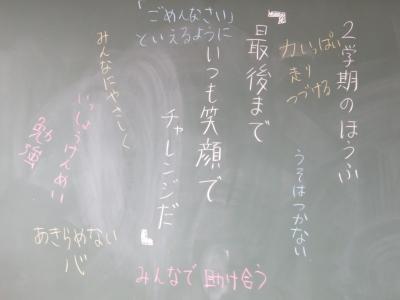 2学期のほうふ
力いっぱい
走り
つづける
うそはつかない
『最後まで
いつも笑顔で
チャレンジだ』
「ごめんなさい」
といえるように
みんなにやさしく
いっしょうけんめい
勉強
あきらめない
心
みんなで助け合う